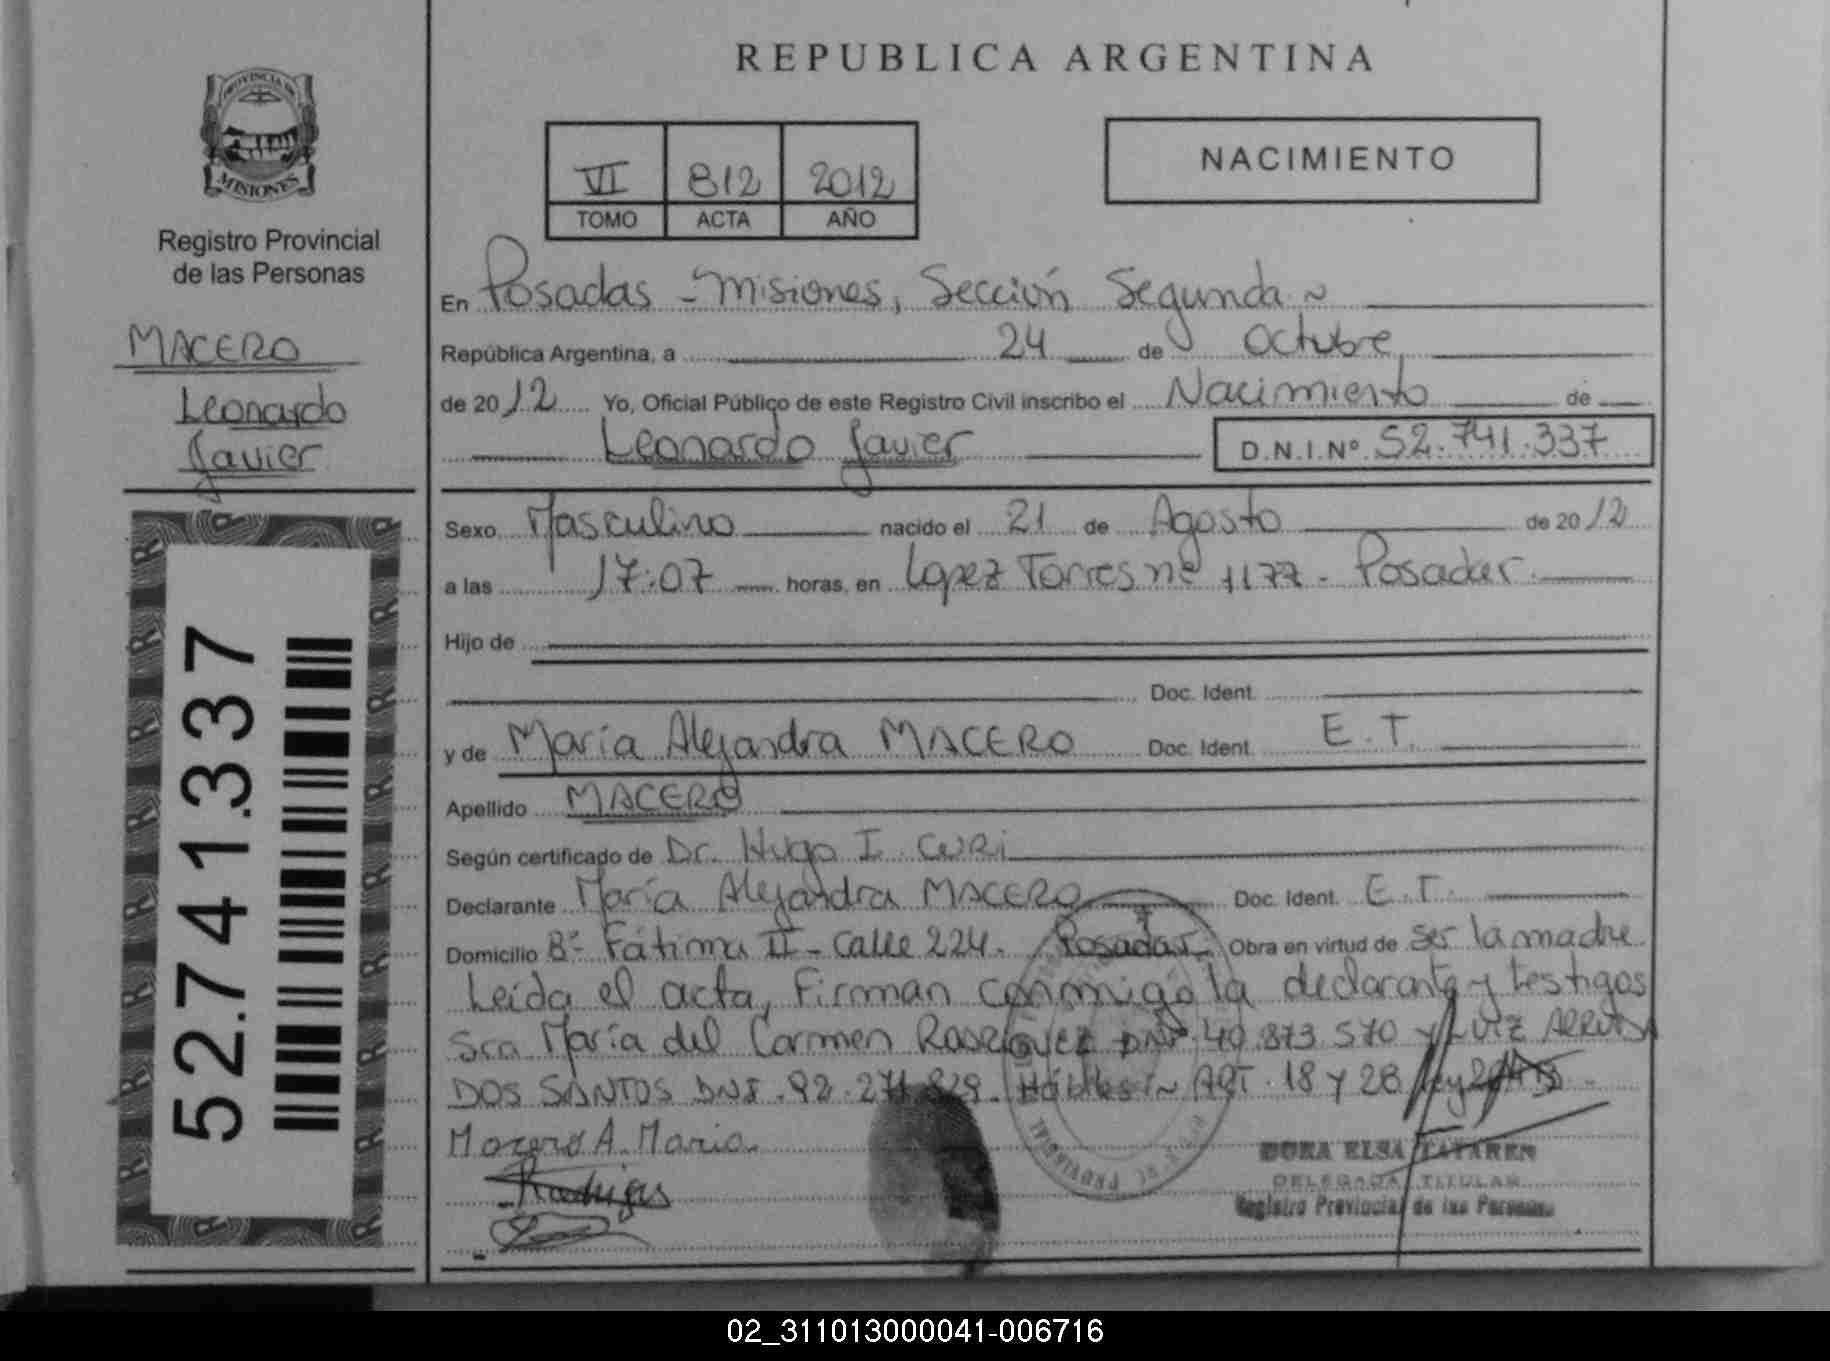 REPUBLICA ARGENTINA
PROVINCIA DE
MISIONES
Registro Provincial
de las Personas
MACERO
Leonardo
Javier
52.741.337
VI 812 2012
TOMO ACTA AÑO
NACIMIENTO
En Posadas - Misiones, Sección Segunda ~
República Argentina, a 24 de Octubre
de 2012 Yo, Oficial Público de este Registro Civil inscribo el Nacimiento de
Leonardo Javier D.N.I.Nº 52.741.337
Sexo Masculino nacido el 21 de Agosto de 2012
a las 17:07 horas, en Lopez Torres nº 1177 - Posadas.
Hijo de
Doc. Ident.
y de María Alejandra MACERO Doc. Ident. E.T.
Apellido MACERO
Según certificado de Dr. Hugo I. CURI
Declarante María Alejandra MACERO Doc. Ident. E.T.
Domicilio Bº Fátima II - Calle 224. Posadas. Obra en virtud de ser la madre
Leída el acta, firman conmigo la declarante y testigos
Sra María del Carmen RODRIGUEZ DNI 40.873.570 y LUIZ
DOS SANTOS DNI. 92.271.829. Hábiles ~ ART. 18 y 28 Ley
Macero A. Maria
DORA ELSA TATAREN
DELEGADA TITULAR
Registro Provincial de las Personas
02_311013000041-006716